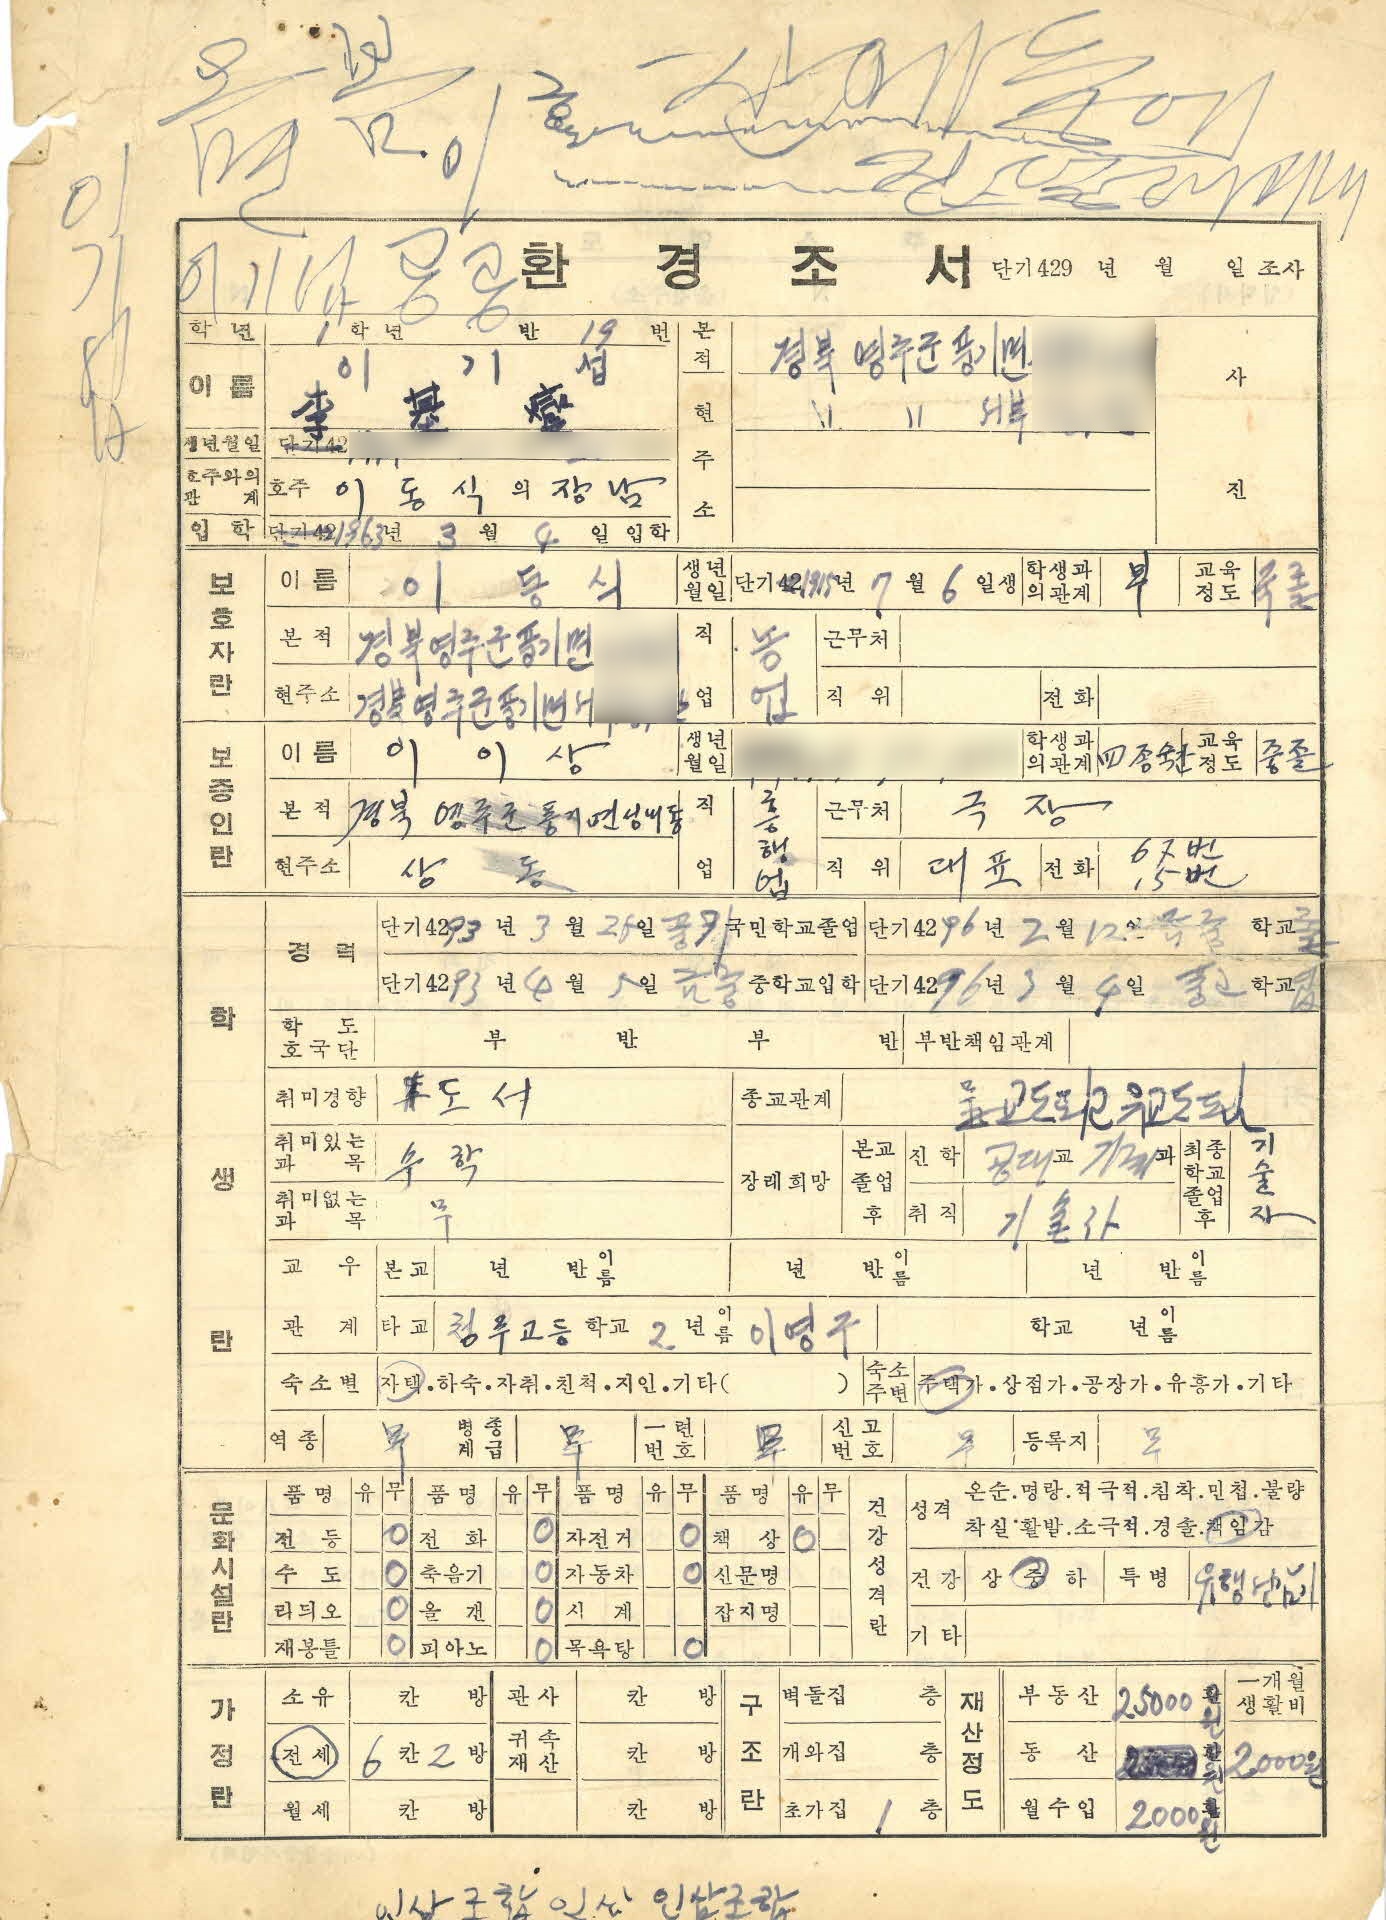 봄 이
산에 들에
진달래 피네
이기섭
이기섭 공공
환경조서 단기429 년 월 일 조사
학년 1 학년 반 19 번
이름 이기섭
李基燮
생년월일 단기42
호주와의 관계 호주 이동식의 장남
입학 단기42 1963년 3월 4일 입학
본적 경북 영주군 풍기면
현주소 〃 〃 서부
사진
보호자란
이름 이동식 생년월일 단기42 1915년 7월 6일생 학생과의관계 부 교육정도 국졸
본적 경북 영주군 풍기면 직업 농업 근무처
현주소 경북 영주군 풍기면 서 직위 전화
보증인란
이름 이이상 생년월일 학생과의관계 四종숙 교육정도 중졸
본적 경북 영주군 풍기면 성내동 직업 흥행업 근무처 극장
현주소 상동 직위 대표 전화 67번 15번
학생란
경력 단기4293년 3월 25일 풍기국민학교졸업 단기4296년 2월 12일 학교졸
단기4293년 4월 5일 금중 중학교입학 단기4296년 3월 4일 학교
학도호국단 부 반 부 반 부반책임관계
취미경향 도서 종교관계
취미있는과목 수학 장래희망 본교졸업후 진학 공대교 기계과 최종학교졸업후 기술자
취미없는과목 무 취직 기술자
교우관계 본교 년 반 이름 년 반 이름 년 반 이름
타교 청루고등학교 2년 이름 이영구 학교 년 이름
숙소별 자택.하숙.자취.친척.지인.기타( ) 숙소주변 주택가.상점가.공장가.유흥가.기타
역종 무 병종계급 무 一련번호 무 신고번호 무 등록지 무
문화시설란
품명 유 무 품명 유 무 품명 유 무 품명 유 무
전등 O 전화 O 자전거 O 책상 O
수도 O 축음기 O 자동차 O 신문명
라듸오 O 올갠 O 시계 잡지명
재봉틀 O 피아노 O 목욕탕 O
건강성격란
성격 온순.명랑.적극적.침착.민첩.불량
착실.활발.소극적.경솔.책임감
건강 상 중 하 특병 유행성감기
기타
가정란
소유 칸 방 관사 칸 방 구조란 벽돌집 층 재산정도 부동산 25000환 원 一개월생활비
전세 6칸 2방 귀속재산 칸 방 개와집 층 동산 환 원 2000원
월세 칸 방 칸 방 초가집 1층 월수입 2000환 원
인삼조합 인삼 인삼조합